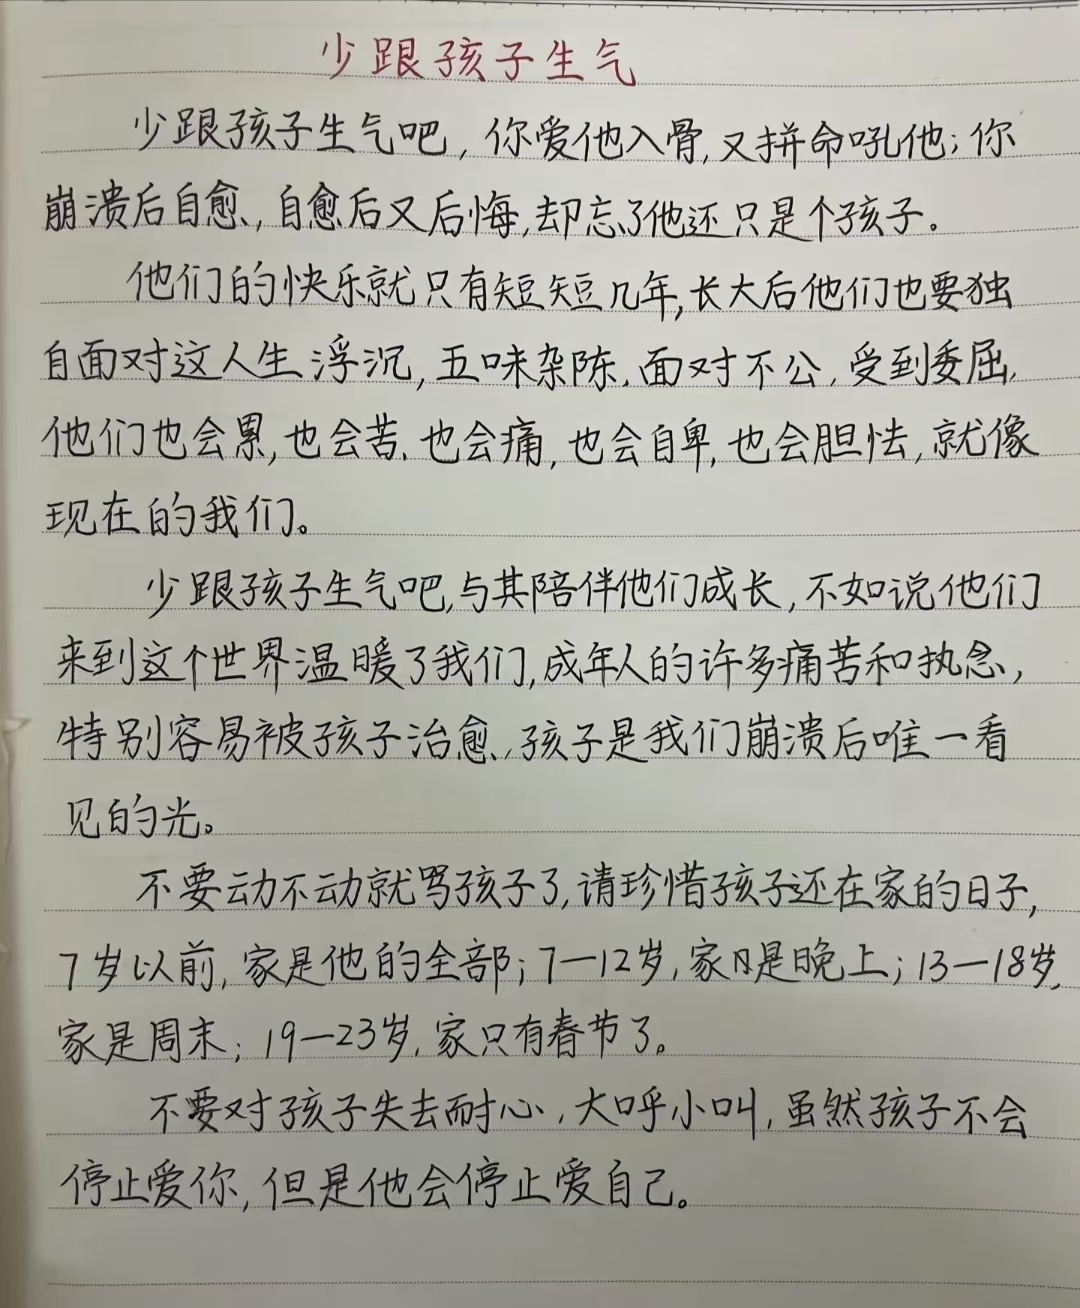 少跟孩子生气
少跟孩子生气吧，你爱他入骨，又拼命吼他；你
崩溃后自愈，自愈后又后悔，却忘了他还只是个孩子。
他们的快乐就只有短短几年，长大后他们也要独
自面对这人生浮沉，五味杂陈，面对不公，受到委屈，
他们也会累，也会苦、也会痛，也会自卑，也会胆怯，就像
现在的我们。
少跟孩子生气吧，与其陪伴他们成长，不如说他们
来到这个世界温暖了我们，成年人的许多痛苦和执念，
特别容易被孩子治愈，孩子是我们崩溃后唯一看
见的光。
不要动不动就骂孩子了，请珍惜孩子还在家的日子，
7岁以前，家是他的全部；7—12岁，家是晚上；13—18岁，
家是周末；19—23岁，家只有春节了。
不要对孩子失去耐心，大呼小叫，虽然孩子不会
停止爱你，但是他会停止爱自己。